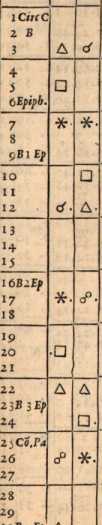 1 Circ C
2 B
3 △ ☌
4
5 □
6 Epiph.
7 ⚹ ⚹
8
9 B 1 Ep
10 □
11
12 ☌. △.
13
14
15
16 B2 Ep
17 ⚹. ☍.
18
19
20 .□
21
22 △ △
23 B 3 Ep
24 □.
25 Cõ, Pa
26 ☍ ⚹.
27
28
29